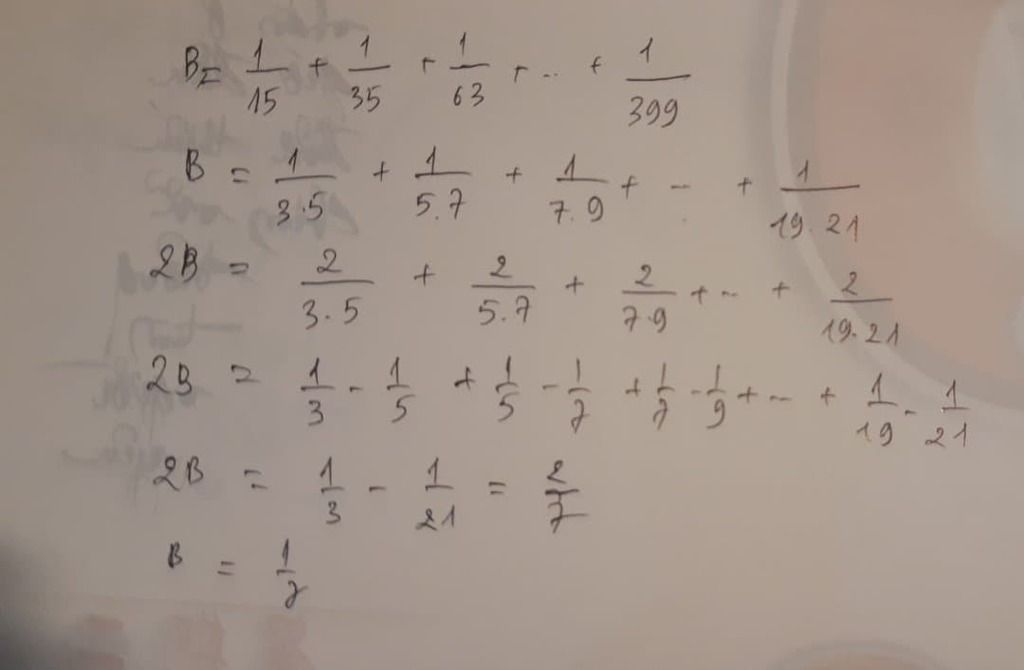 B = 1/15 + 1/35 + 1/63 + ... + 1/399
B = 1/3.5 + 1/5.7 + 1/7.9 + ... + 1/19.21
2B = 2/3.5 + 2/5.7 + 2/7.9 + ... + 2/19.21
2B = 1/3 - 1/5 + 1/5 - 1/7 + 1/7 - 1/9 + ... + 1/19 - 1/21
2B = 1/3 - 1/21 = 2/7
B = 1/7